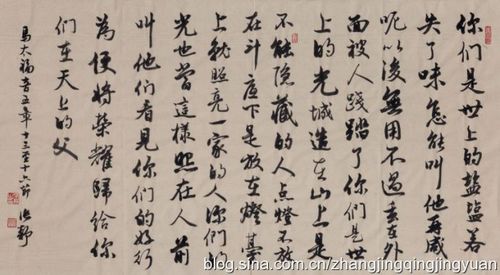 你们是世上的盐盐若
失了味怎能叫他再咸
呢以後無用不過丟在外
面被人踐踏了你们是世
上的光城造在山上是
不能隐藏的人点燈不放
在斗底下是放在燈臺
上就照亮一家的人你们的
光也當這樣照在人前
叫他们看見你们的好行
為便將榮耀歸給你
们在天上的父
馬太福音五章十三至十六節
blog.sina.com.cn/zhangjingqingjingyuan